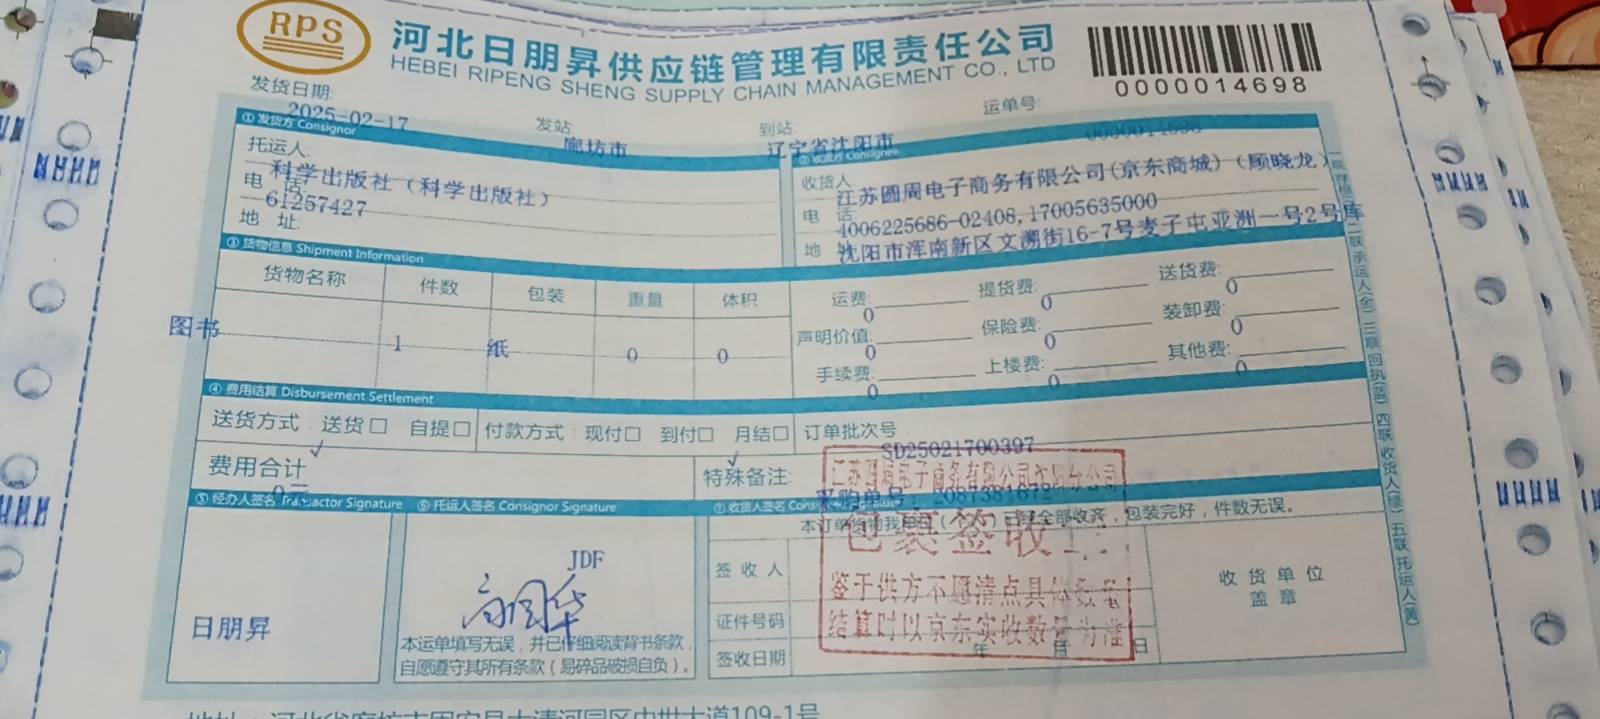 RPS
河北日朋昇供应链管理有限责任公司
HEBEI RIPENG SHENG SUPPLY CHAIN MANAGEMENT CO., LTD
0000014698
发货日期: 2025-02-17
发站 廊坊市
到站 辽宁省沈阳市
运单号:
① 发货方 Consignor
托运人: 科学出版社（科学出版社）
电 话: 61257427
地 址:
② 收货方 Consignee
收货人 江苏圆周电子商务有限公司(京东商城)（顾晓龙）
电 话: 4006225686-02408,17005635000
地 沈阳市浑南新区文溯街16-7号麦子屯亚洲一号2号库
③ 货物信息 Shipment Information
货物名称 件数 包装 重量 体积
图书 1 纸 0 0
运费: 0 提货费: 0 送货费: 0
声明价值: 0 保险费: 0 装卸费: 0
手续费: 0 上楼费: 0 其他费: 0
④ 费用结算 Disbursement Settlement
送货方式: 送货□ 自提□ 付款方式: 现付□ 到付□ 月结□ 订单批次号: SD25021700397
费用合计
特殊备注:
采购单号:
⑤ 经办人签名 Transactor Signature
⑥ 托运人签名 Consignor Signature
⑦ 收货人签名
日朋昇
JDF
本运单填写无误，并已仔细阅读背书条款，
自愿遵守其所有条款（易碎品破损自负）。
全部收齐，包装完好，件数无误。
签收人
证件号码
签收日期 年 月 日
收货单位
盖章
包裹签收
鉴于供方不愿清点具体数量
结算时以京东实收数量为准
二联承运人(金) 三联回执(蓝) 四联收货人(绿) 五联托运人(黄)